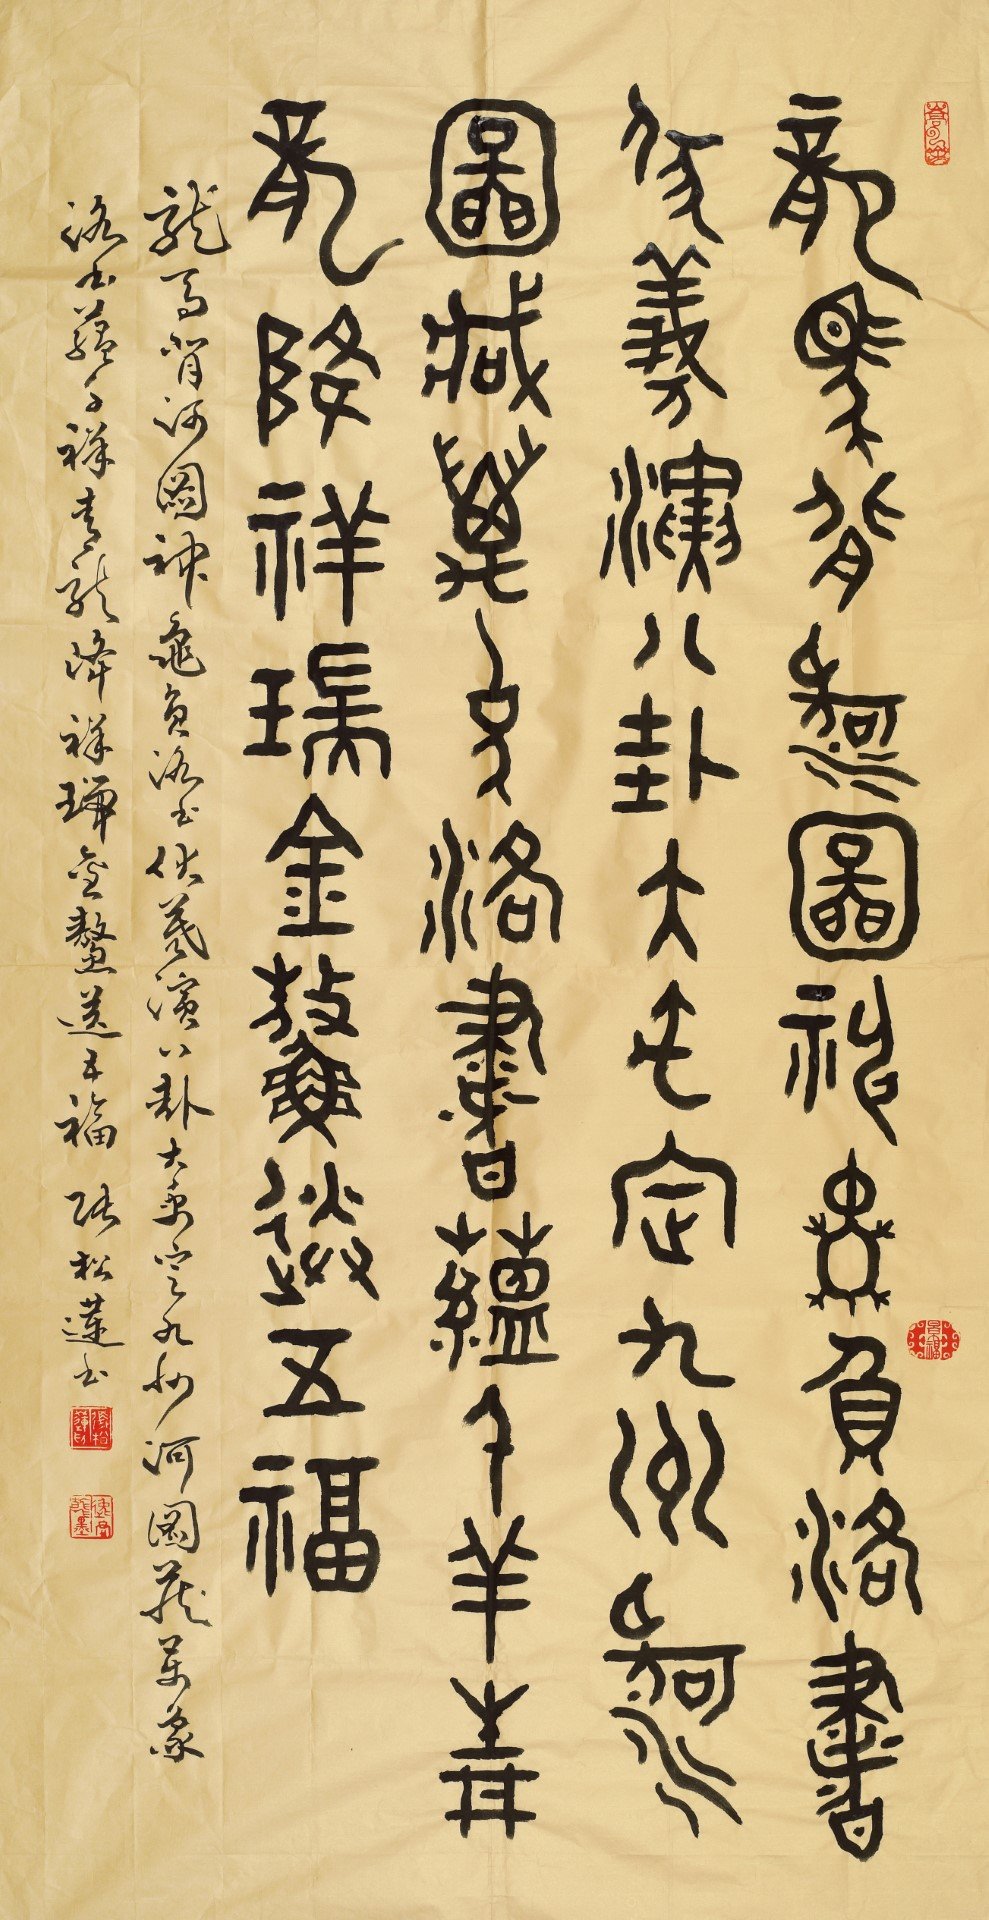 龍馬背河圖神龜負洛書
伏羲演八卦大禹定九州河
圖藏萬象洛書蘊千羊青
龍降祥瑞金鰲送五福
龍馬背河圖神龜負洛书伏羲演八卦大禹定九州河圖藏萬象
洛书蘊千祥青龍降祥瑞金鰲送五福 张松蓮书